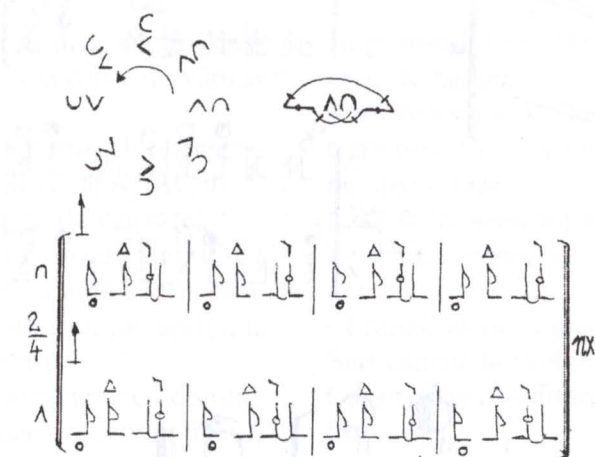 2
4
nx